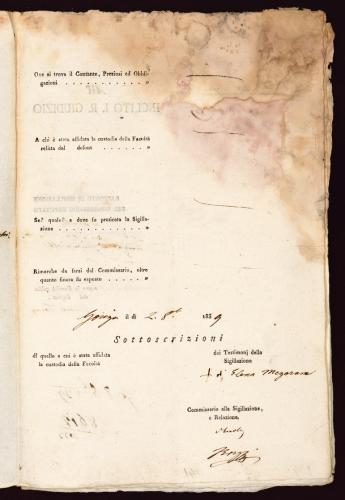 Ove si trova il Contante, Preziosi ed Obbli-
gazioni . . . . . . . . . . . . „
A chi è stata affidata la custodia della Facoltà
relitta dal defont . . . . . . . . „
Se? quale? e dove fu praticata la Sigilla-
zione . . . . . . . . . . . . . „
Rimarche da farsi dal Commissario, oltre
quanto finora fu esposto . . . . . . „
il dì 2 8bre 1839
Sottoscrizioni
di quello a cui è stata affidata
la custodia della Facoltà
dei Testimonj della
Sigillazione
† di Elena
Commissario alla Sigillazione,
e Relazione,